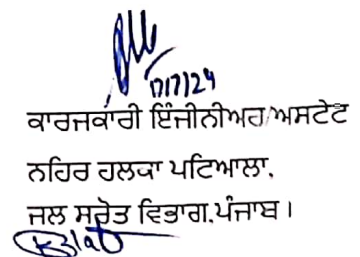 17/7/24
ਕਾਰਜਕਾਰੀ ਇੰਜੀਨੀਅਰ/ਅਸਟੇਟ
ਨਹਿਰ ਹਲਕਾ ਪਟਿਆਲਾ,
ਜਲ ਸਰੋਤ ਵਿਭਾਗ,ਪੰਜਾਬ।